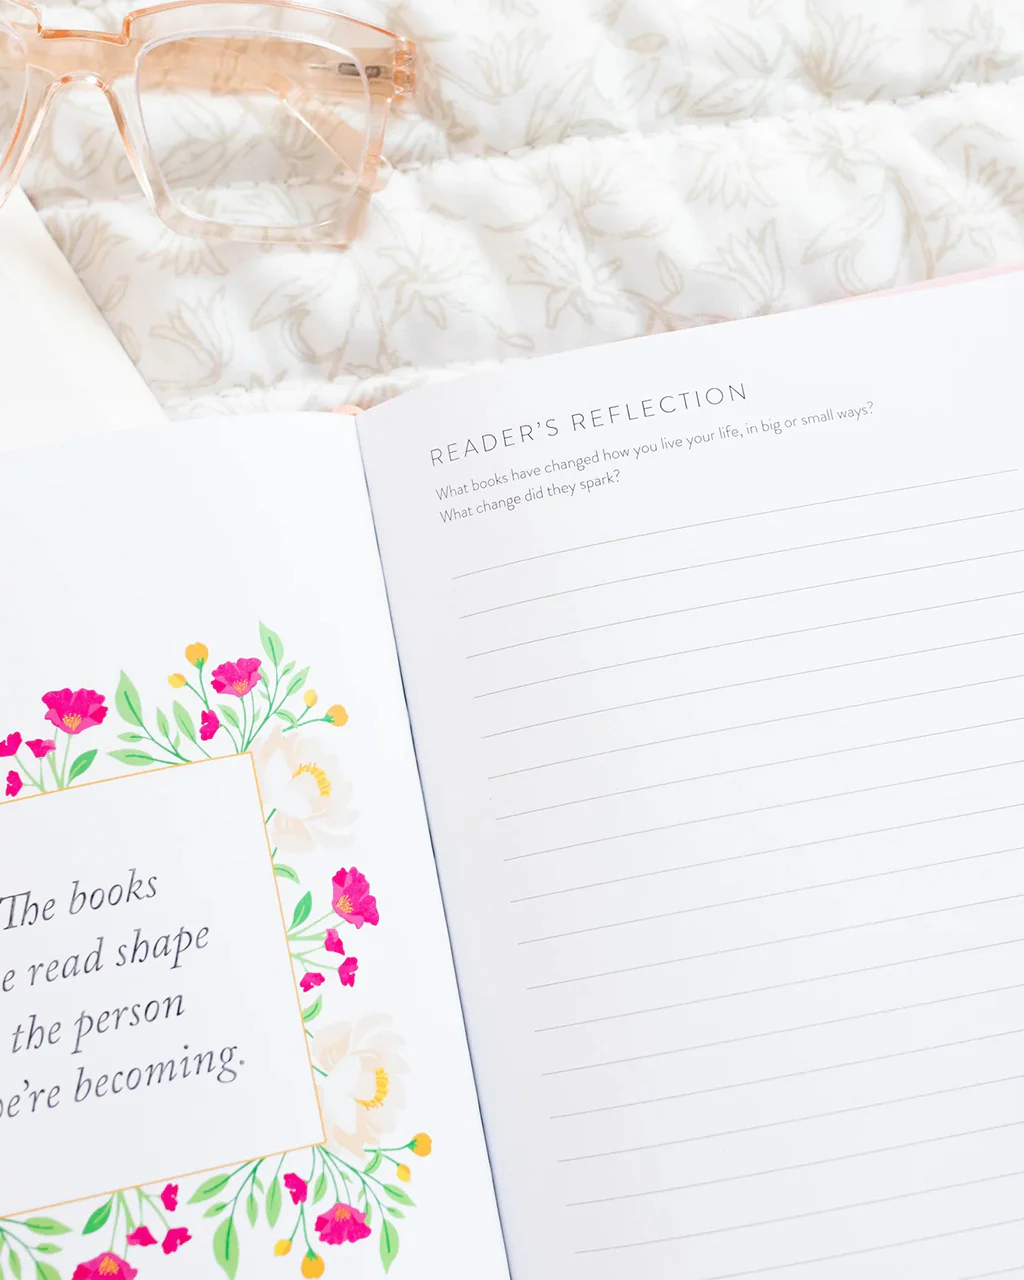 The books
e read shape
the person
e're becoming.
READER'S REFLECTION
What books have changed how you live your life, in big or small ways?
What change did they spark?